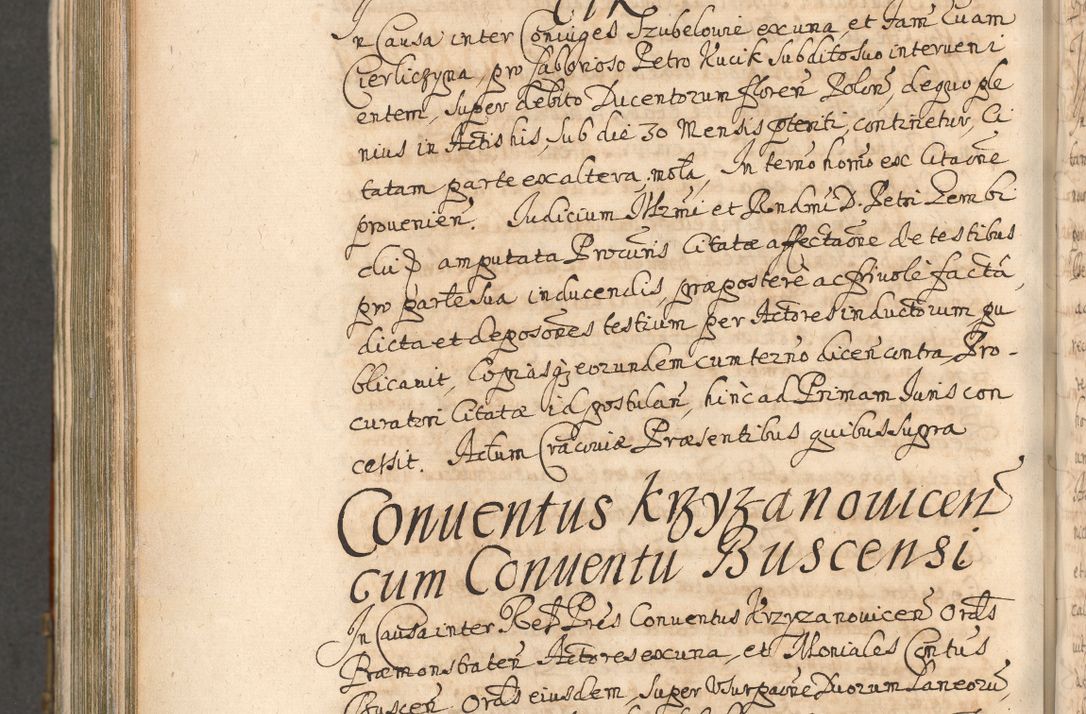 In Causa inter Coniuges Szubelouie ex una, et Jam Euam
Cierliczyna, pro fabbrioso Petro Kucik subdito suo interueni
entem, super debito Ducentorum floren̄ Polon̄, de quo ple
nius in Actis his, sub die 30 Mensis pn̄tis, continetur, Ci
tatam parte ex altera, mota, In termo homo ex Citaōne
prouenien̄. Judicium Illmi et Rndmi D. Petri Gembi
cki amputata Procuris Citatae affectaōne de testibus
pro parte sua inducendis, praepostere ac friuole facta,
dicta et deposoēs testium per Actores inductorum pu
blicauit, Copias eorundem cum termo dicen̄ contra, Pro-
curatori Citatae id postulan̄, hinc ad Primam Juris con
cessit. Actum Cracouiae Praesentibus quibus supra
Conuentus Krzyzanouicen̄
cum Conuentu Buscensi
In Causa inter Rel Pres Conuentus Krzyzanouicen̄ Ordīs
Praemonstraten̄ Actores ex una, et Moniales Conūtus
Buscen̄ Ordīs eiusdem, super Vsurpaōne Duorum Laneorū,